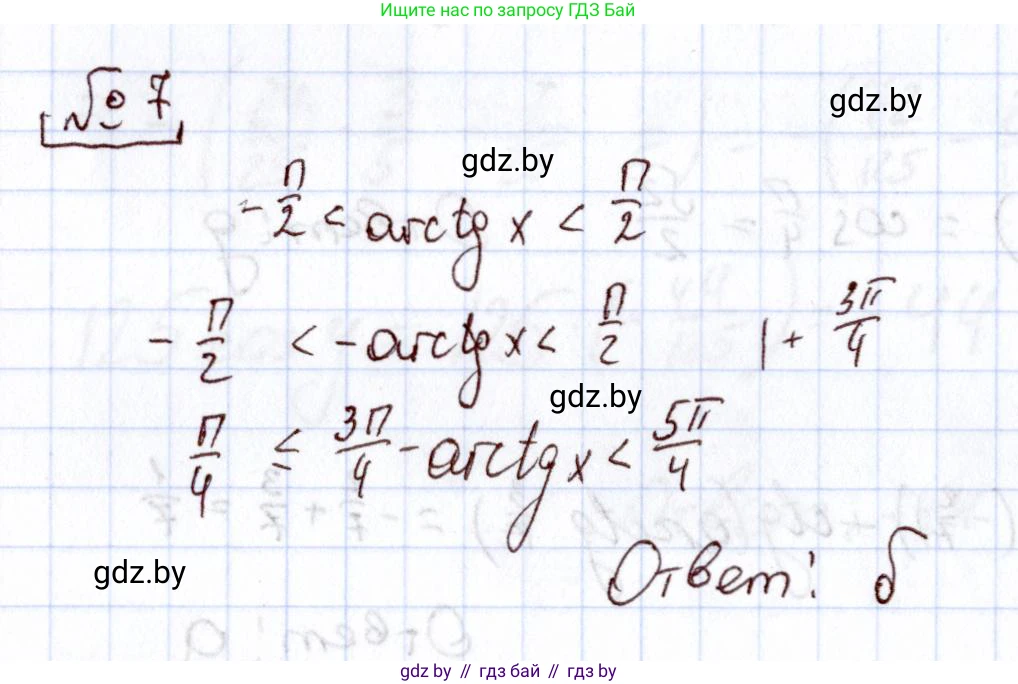 Ищите нас по запросу ГДЗ Бай
№ 7
gdz.by
gdz.by
-π/2 < arctg x < π/2
-π/2 < -arctg x < π/2 | + 3π/4
gdz.by
π/4 ≤ 3π/4 - arctg x < 5π/4
gdz.by
Ответ: б
gdz.by // гдз бай // гдз by